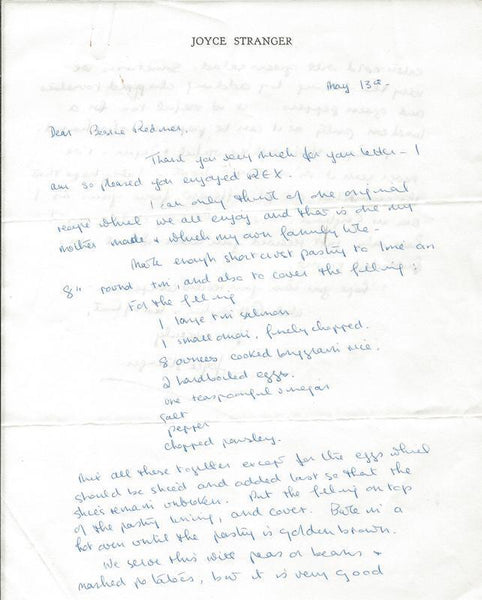 JOYCE STRANGER
May 13th,
Dear Bessie Redmer,
Thank you very much for your letter – I
am so pleased you enjoyed REX.
I can only think of one original
recipe which we all enjoy and that is one my
mother made & which my own family like –
Make enough short crust pastry to line an
8" round tin, and also to cover the filling:
For the filling
1 large tin salmon
1 small onion, finely chopped.
8 ounces cooked long grain rice.
2 hardboiled eggs.
one teaspoonful vinegar
salt
pepper
chopped parsley.
Mix all these together except for the eggs which
should be sliced and added last so that the
slices remain unbroken. Put the filling on top
of the pastry lining, and cover. Bake in a
hot oven until the pastry is golden brown.
We serve this with peas or beans &
mashed potatoes, but it is very good